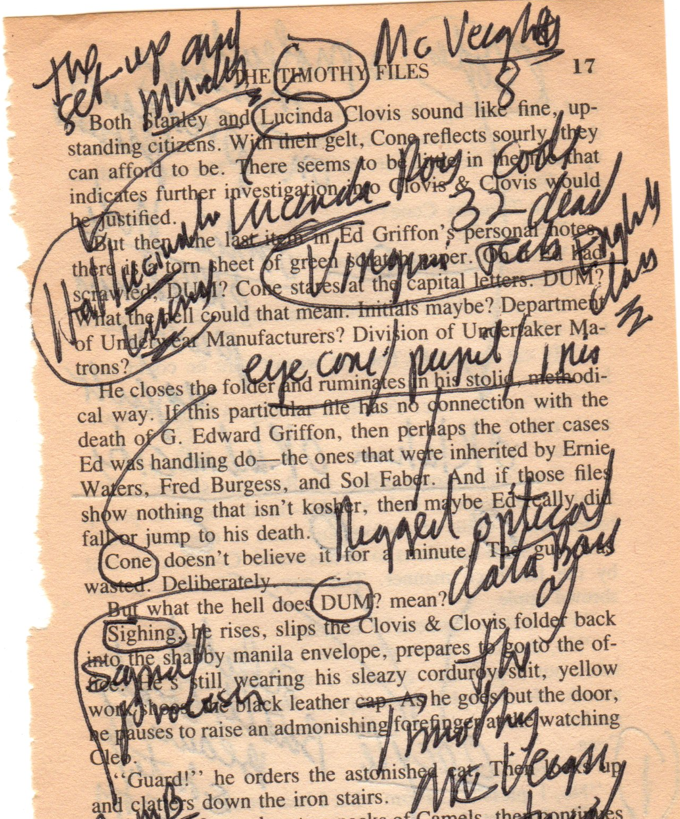 the
set-up and
murders
Mc Veigh
8
THE TIMOTHY FILES 17
Both Stanley and Lucinda Clovis sound like fine, up-
standing citizens. With their gelt, Cone reflects sourly, they
can afford to be. There seems to be little in that
indicates further investigation into Clovis & Clovis would
be justified.
Lucinda Ross code
32 dead
But then the last item in Ed Griffon's personal notes,
there is a torn sheet of green scratch paper. On it Ed had
scrawled, DUM? Cone stares at the capital letters. DUM?
What the hell could that mean. Initials maybe? Department
of Underwear Manufacturers? Division of Undertaker Ma-
trons?
Virginia Tech English
class
eye cone/ pupil/ iris
He closes the folder and ruminates in his stolid, methodi-
cal way. If this particular file has no connection with the
death of G. Edward Griffon, then perhaps the other cases
Ed was handling do—the ones that were inherited by Ernie
Waters, Fred Burgess, and Sol Faber. And if those files
show nothing that isn't kosher, then maybe Ed really did
fall or jump to his death.
Rigged optical
data Base
of
the
Timothy
Mc Veigh
Cone doesn't believe it for a minute. The guy was
wasted. Deliberately.
But what the hell does DUM? mean?
Sighing, he rises, slips the Clovis & Clovis folder back
into the shabby manila envelope, prepares to go to the of-
fice. He's still wearing his sleazy corduroy suit, yellow
work shoes, the black leather cap. As he goes out the door,
he pauses to raise an admonishing forefinger at the watching
Cleo.
signal
process
"Guard!" he orders the astonished cat. Then locks up
and clatters down the iron stairs.
of Camels, then continues